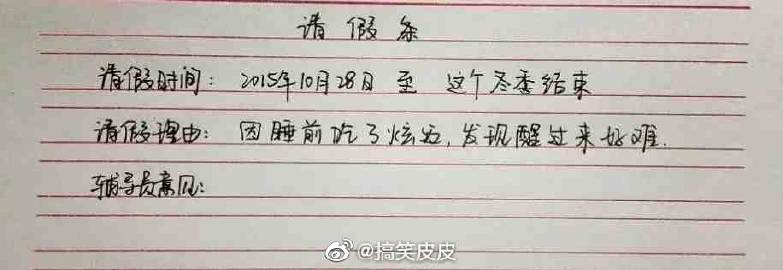 请假条
请假时间： 2015年10月28日 至 这个冬季结束
请假理由： 因睡前吃了炫迈，发现醒过来好难.
辅导员意见：
@搞笑皮皮